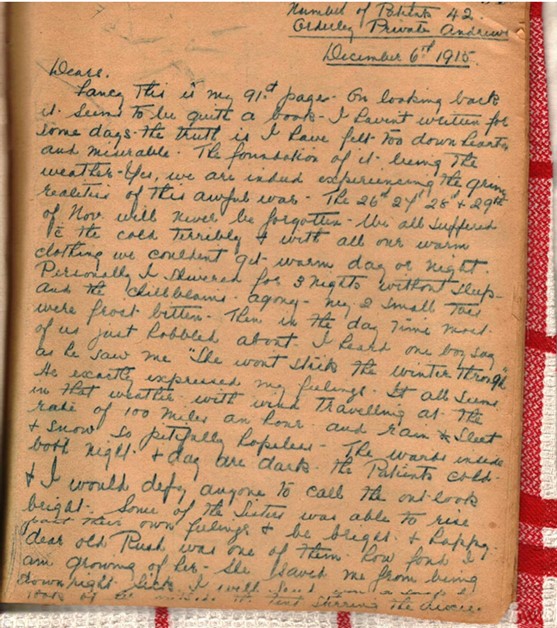 Number of Patients 42.
Orderley Private Andrews
December 6th 1915.
Deare.
Fancy This is my 91st page. On looking back
it seems to be quite a book. I havent written for
some days. the truth is I have felt too down hearted
and miserable. The foundation of it being the
weather. Yes, we are indeed experiencing the grim
realities of this awful war. The 26th 27th 28th & 29th
of Nov will never be forgotten. We all suffered
the cold terribly & with all our warm
clothing we couldent get warm day or night.
Personally I shivered for 3 nights without sleep
and the chillblains agony. my 2 small toes
were frost bitten. Then in the day time most
of us just hobbled about. I heard one boy say
as he saw me "She wont stick the winter through"
He exactly expressed my feelings. It all seems
in that weather with wind travelling at the
rate of 100 miles an hour and rain & sleet
& snow so pitifully hopeless. The wards inside
both night & day are dark. the Patients cold
& I would defy anyone to call the out-look
bright. Some of the Sisters was able to rise
their own feelings & be bright & happy.
dear old Rush was one of them. How fond I
am growing of her. She saved me from being
downright sick. I will send
of the tent the